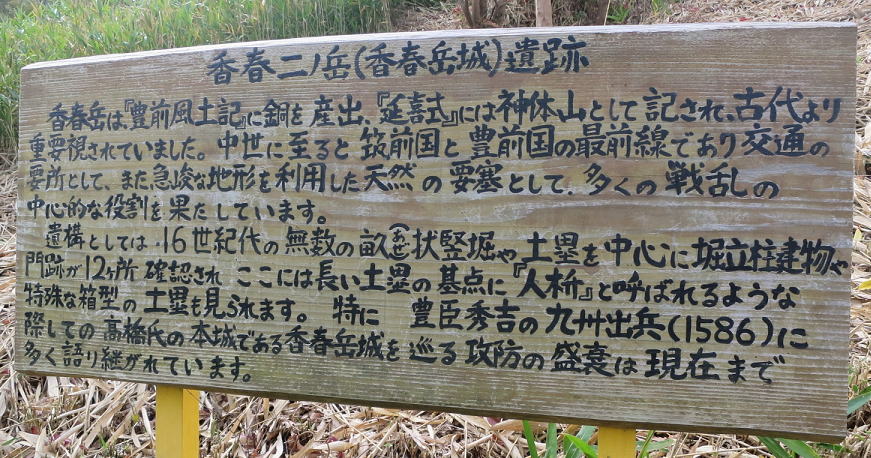 香春二ノ岳(香春岳城)遺跡
香春岳は『豊前風土記』に銅を産出、『延喜式』には神体山として記され、古代より
重要視されていました。中世に至ると筑前国と豊前国の最前線であり交通の
要所として、また急峻な地形を利用した天然の要塞として、多くの戦乱の
中心的な役割を果たしています。
遺構としては、16世紀代の無数の畝(あぜ)状竪堀や土塁を中心に堀立柱建物や
門跡が12ヶ所確認され ここには長い土塁の基点に『人枡』と呼ばれるような
特殊な箱型の土塁も見られます。 特に 豊臣秀吉の九州出兵(1586)に
際しての高橋氏の本城である香春岳城を巡る攻防の盛衰は現在まで
多く語り継がれています。